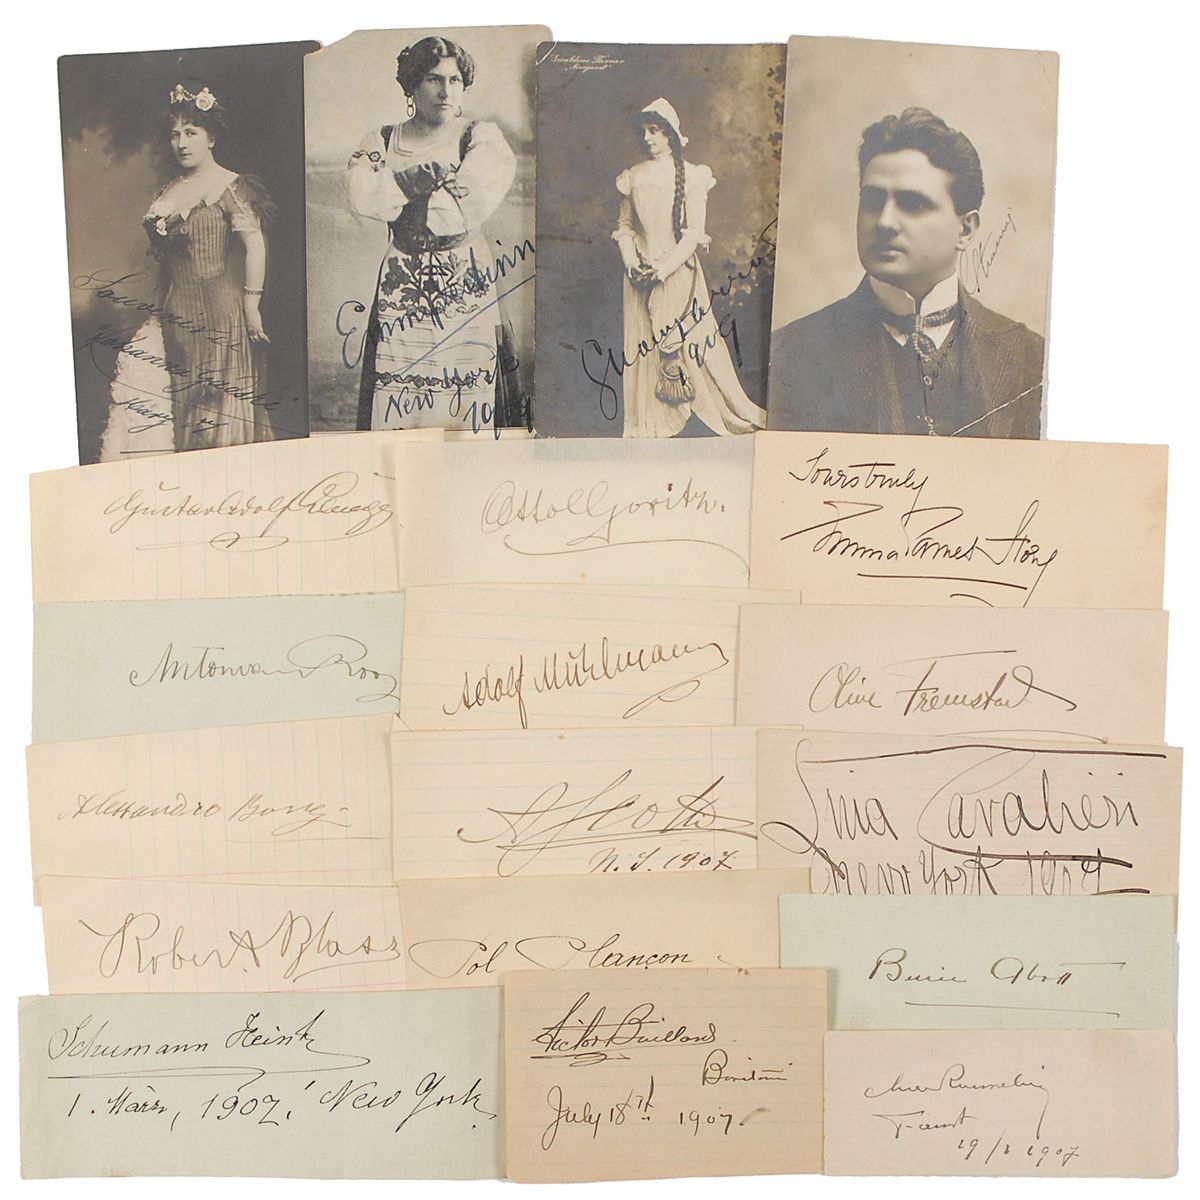 Souvenir
Johanna Gadski
Emmy Destinn
New York
1909
Geraldine Farrar
"Margaret"
Geraldine Farrar
1909
Gustav Adolf
Otto Goritz.
Yours truly
Emma Eames Story
Antonio van Rooy
Adolf Mühlmann
Olive Fremstad
Alessandro Bonci
A Scotti
N.Y. 1907
Lina Cavalieri
New York 1909
Robert Blass
Pol Plançon
Bessie Abott
Schumann Heink
1. März, 1907. New York.
July 18th 1907
Faust
19/2 1907